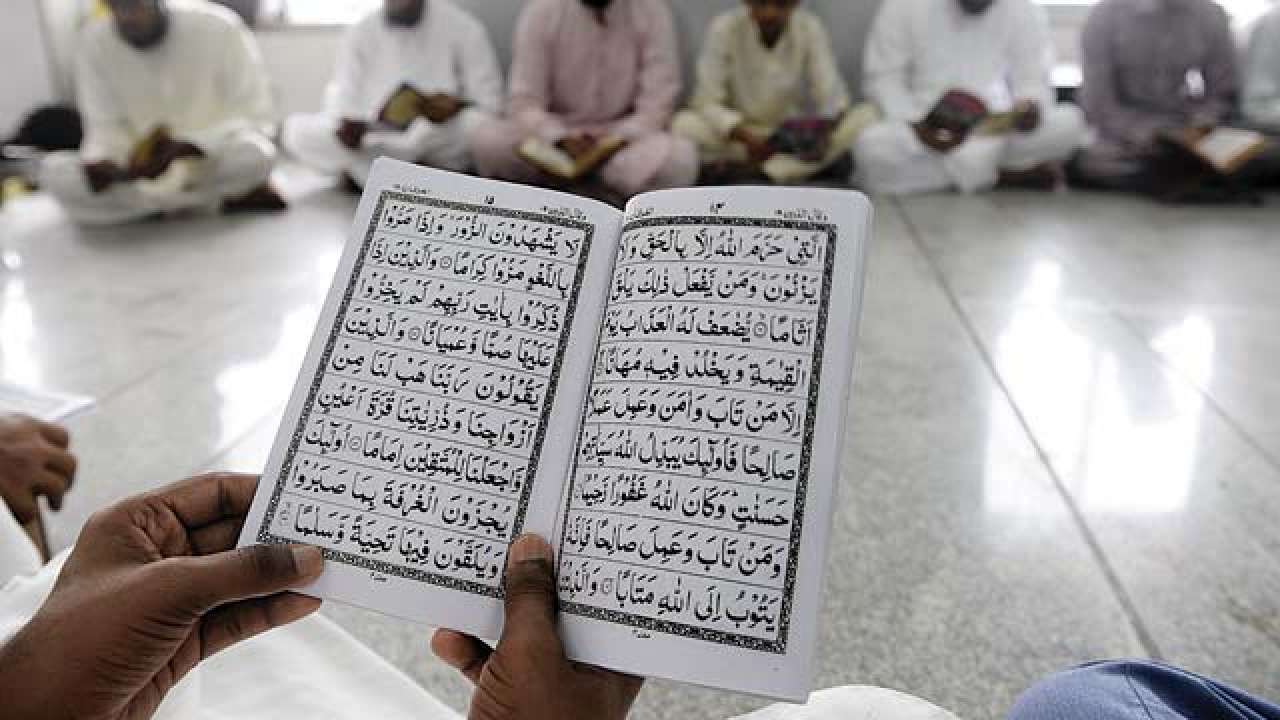 الَّتِيْ حَرَّمَ اللهُ اِلَّا بِالْحَقِّ وَلَا
يَزْنُوْنَ ۚ وَمَنْ يَّفْعَلْ ذٰلِكَ يَلْقَ
اَثَامًا ۝ يُّضٰعَفْ لَهُ الْعَذَابُ يَوْمَ
الْقِيٰمَةِ وَيَخْلُدْ فِيْهٖ مُهَانًا
اِلَّا مَنْ تَابَ وَاٰمَنَ وَعَمِلَ عَمَلًا
صَالِحًا فَاُولٰٓئِكَ يُبَدِّلُ اللهُ سَيِّاٰتِهِمْ
حَسَنٰتٍ ؕ وَكَانَ اللهُ غَفُوْرًا رَّحِيْمًا
وَمَنْ تَابَ وَعَمِلَ صَالِحًا فَاِنَّهٗ
يَتُوْبُ اِلَى اللهِ مَتَابًا ۝ وَالَّذِيْنَ
١٥
لَا يَشْهَدُوْنَ الزُّوْرَ ۙ وَاِذَا مَرُّوْا
بِاللَّغْوِ مَرُّوْا كِرَامًا ۝ وَالَّذِيْنَ اِذَا
ذُكِّرُوْا بِاٰيٰتِ رَبِّهِمْ لَمْ يَخِرُّوْا
عَلَيْهَا صُمًّا وَّعُمْيَانًا ۝ وَالَّذِيْنَ
يَقُوْلُوْنَ رَبَّنَا هَبْ لَنَا مِنْ
اَزْوَاجِنَا وَذُرِّيّٰتِنَا قُرَّةَ اَعْيُنٍ
وَّاجْعَلْنَا لِلْمُتَّقِيْنَ اِمَامًا ۝ اُولٰٓئِكَ
يُجْزَوْنَ الْغُرْفَةَ بِمَا صَبَرُوْا
وَيُلَقَّوْنَ فِيْهَا تَحِيَّةً وَّسَلٰمًا ۝